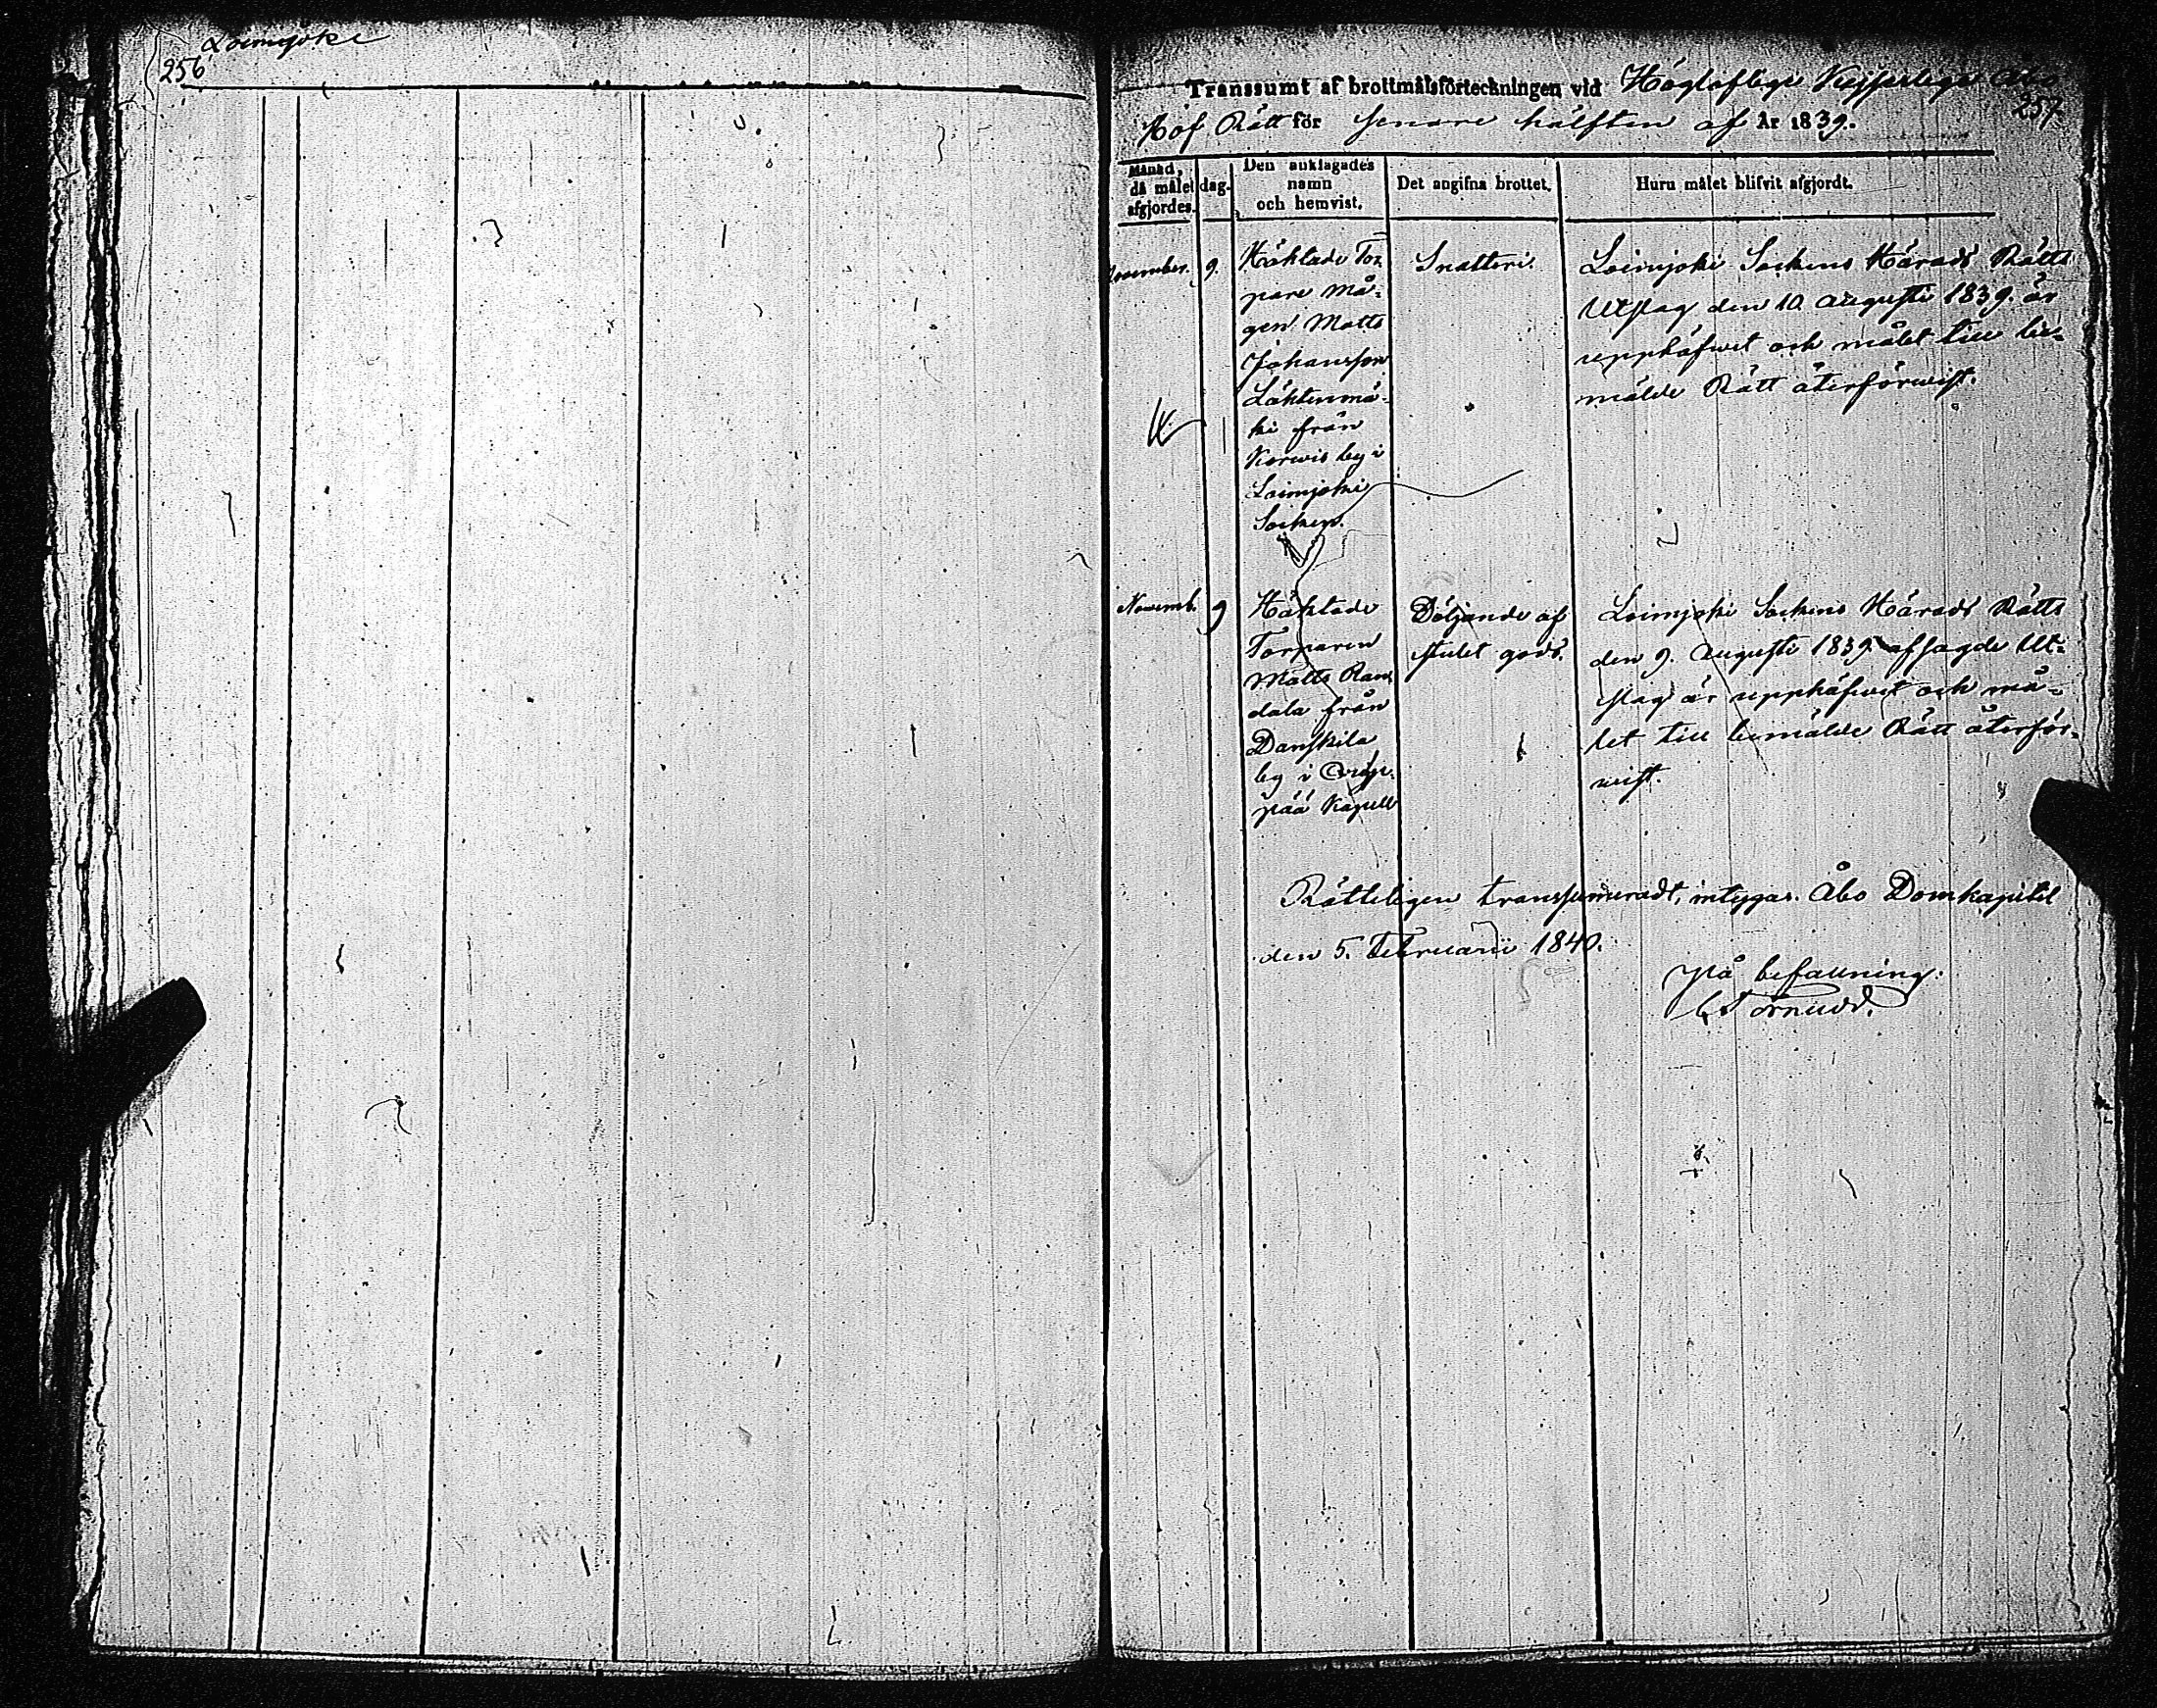 Loimijoki
256
Transsumt af brottmålsförteckningen vid Högloflige Kejserlige Åbo
257.
Hof Rätt för senare hälften af År 1839.
Månad, då målet afgjordes.
dag.
Den anklagades namn och hemvist.
Det angifna brottet.
Huru målet blifvit afgjordt.
November.
9.
Häktade Tor
pare må-
gen Matts
Johansson
Lähtenmä-
ki från
by i
Loimjoki
Socken.
Snatteri.
Loimjoki Sockens Härads Rätts
Utslag den 10 Augusti 1839. är
upphäfwet och målet till be-
mälde Rätt återförwist.
Novemb.
9
Häktade
Torparen
Matts
dala från
Danskila
by i
pää Kapell
Döljande af
stulet gods.
Loimjoki Sockens Härads Rätts
den 9. Augusti 1839 afsagde Ut-
slag är upphäfwet och må-
let till bemälde Rätt återför-
wist.
Rätteligen transsumeradt, intygar. Åbo Domkapitel
den 5. Februarii 1840.
På befallning:
Törnudd.